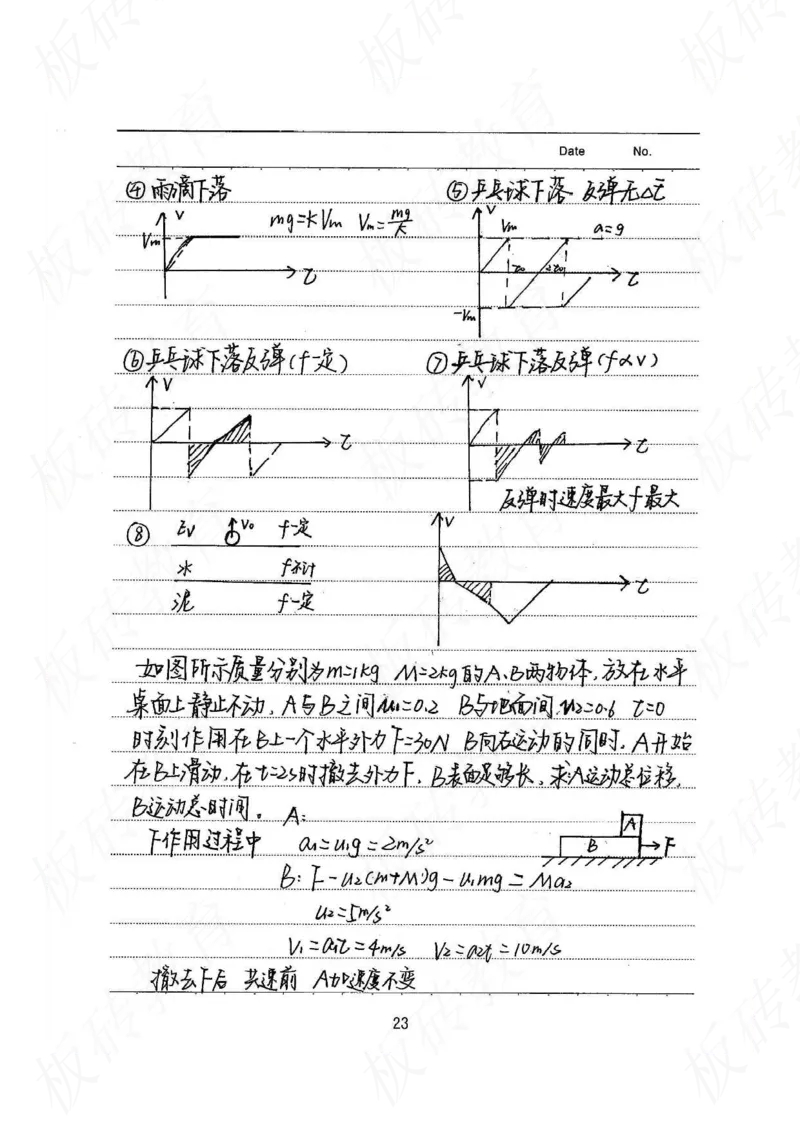 Date No.
④雨滴下落
V
Vm
mg=kVm Vm=mg/k
t
⑤乒乓球下落 反弹无△t
V
Vm
a=g
t0 2t0
t
-Vm
⑥乒乓球下落反弹(f一定)
V
t
⑦乒乓球下落反弹(f∝v)
V
t
反弹时速度最大f最大
⑧
Ev V0 f一定
水 f不计
泥 f一定
V
t
如图所示质量分别为m=1kg M=2kg的A、B两物体,放在水平
桌面上静止不动,A与B之间u1=0.2 B与地面间u2=0.6 t=0
时刻作用在B上一个水平外力F=30N B向右运动的同时,A开始
在B上滑动,在t=2s时撤去外力F,B表面足够长,求:A运动总位移,
B运动总时间。
A:
F作用过程中 a1=u1g=2m/s²
A
B
F
B:F-u2(m+M)g-u1mg=Ma2
a2=5m/s²
V1=a1t=4m/s V2=a2t=10m/s
撤去F后 共速前 A加速度不变
23
板砖教育